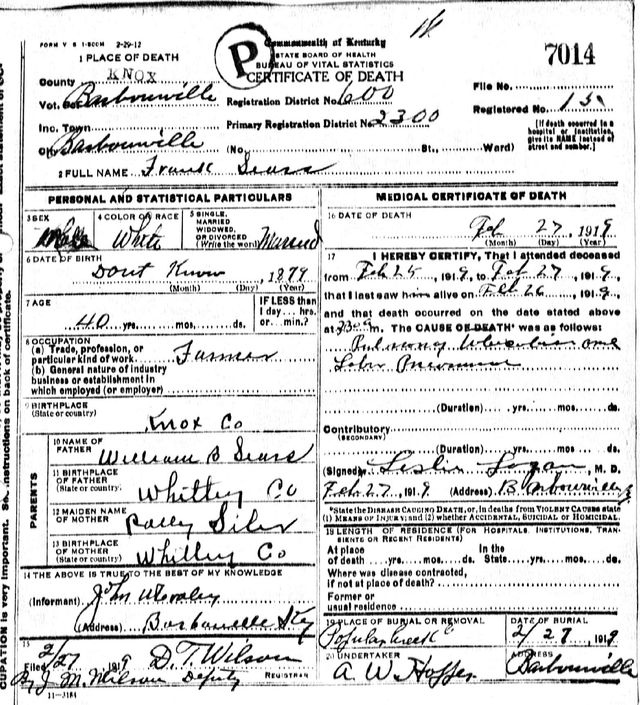 FORM V S 1-500M 2-29-12
1 PLACE OF DEATH
County KNOX
Vot. Barbourville
Inc. Town
City Barbourville
P
Commonwealth of Kentucky
STATE BOARD OF HEALTH
BUREAU OF VITAL STATISTICS
CERTIFICATE OF DEATH
Registration District No. 600
Primary Registration District No. 2300
(No. St., Ward)
7014
File No.
Registered No.
[If death occurred in a hospital or institution, give its NAME instead of street and number.]
2 FULL NAME Frank Sears
PERSONAL AND STATISTICAL PARTICULARS
3 SEX Male
4 COLOR OR RACE White
5 SINGLE, MARRIED WIDOWED, OR DIVORCED (Write the word) Married
6 DATE OF BIRTH
Dont Know, 1879
(Month) (Day), (Year)
7 AGE
40 yrs. mos. ds.
IF LESS than 1 day... hrs. or... min.?
8 OCCUPATION
(a) Trade, profession, or particular kind of work Farmer
(b) General nature of industry business or establishment in which employed (or employer)
9 BIRTHPLACE
(State or country) Knox Co
PARENTS
10 NAME OF FATHER William B Sears
11 BIRTHPLACE OF FATHER (State or country) Whitley Co
12 MAIDEN NAME OF MOTHER Siler
13 BIRTHPLACE OF MOTHER (State or country) Whitley Co
14 THE ABOVE IS TRUE TO THE BEST OF MY KNOWLEDGE
(Informant) John
(Address) Barbourville Ky
15
Filed 2/27 1919 D. T. Wilson
REGISTRAR
By J. M. Wilson Deputy
11-3184
MEDICAL CERTIFICATE OF DEATH
16 DATE OF DEATH
Feb 27, 1919
(Month) (Day) (Year)
17 I HEREBY CERTIFY, That I attended deceased
from Feb 25 1919, to Feb 27, 1919,
that I last saw him alive on Feb 26 1919,
and that death occurred on the date stated above
at m. The CAUSE OF DEATH* was as follows:
Pulmonary Tuberculosis and
Lobar Pneumonia
(Duration) yrs. mos. ds.
Contributory
(SECONDARY)
(Duration) yrs. mos. ds.
(Signed) Leslie Logan, M. D.
Feb 27, 1919 (Address) Barbourville
*State the DISEASE CAUSING DEATH, or, in deaths from VIOLENT CAUSES state (1) MEANS OF INJURY; and (2) whether ACCIDENTAL, SUICIDAL or HOMICIDAL.
18 LENGTH OF RESIDENCE (FOR HOSPITALS, INSTITUTIONS, TRANSIENTS OR RECENT RESIDENTS)
At place of death yrs. mos. ds. In the State yrs. mos. ds.
Where was disease contracted, if not at place of death?
Former or usual residence
19 PLACE OF BURIAL OR REMOVAL
DATE OF BURIAL
2/27 1919
20 UNDERTAKER
A W Hopper
ADDRESS
Barbourville